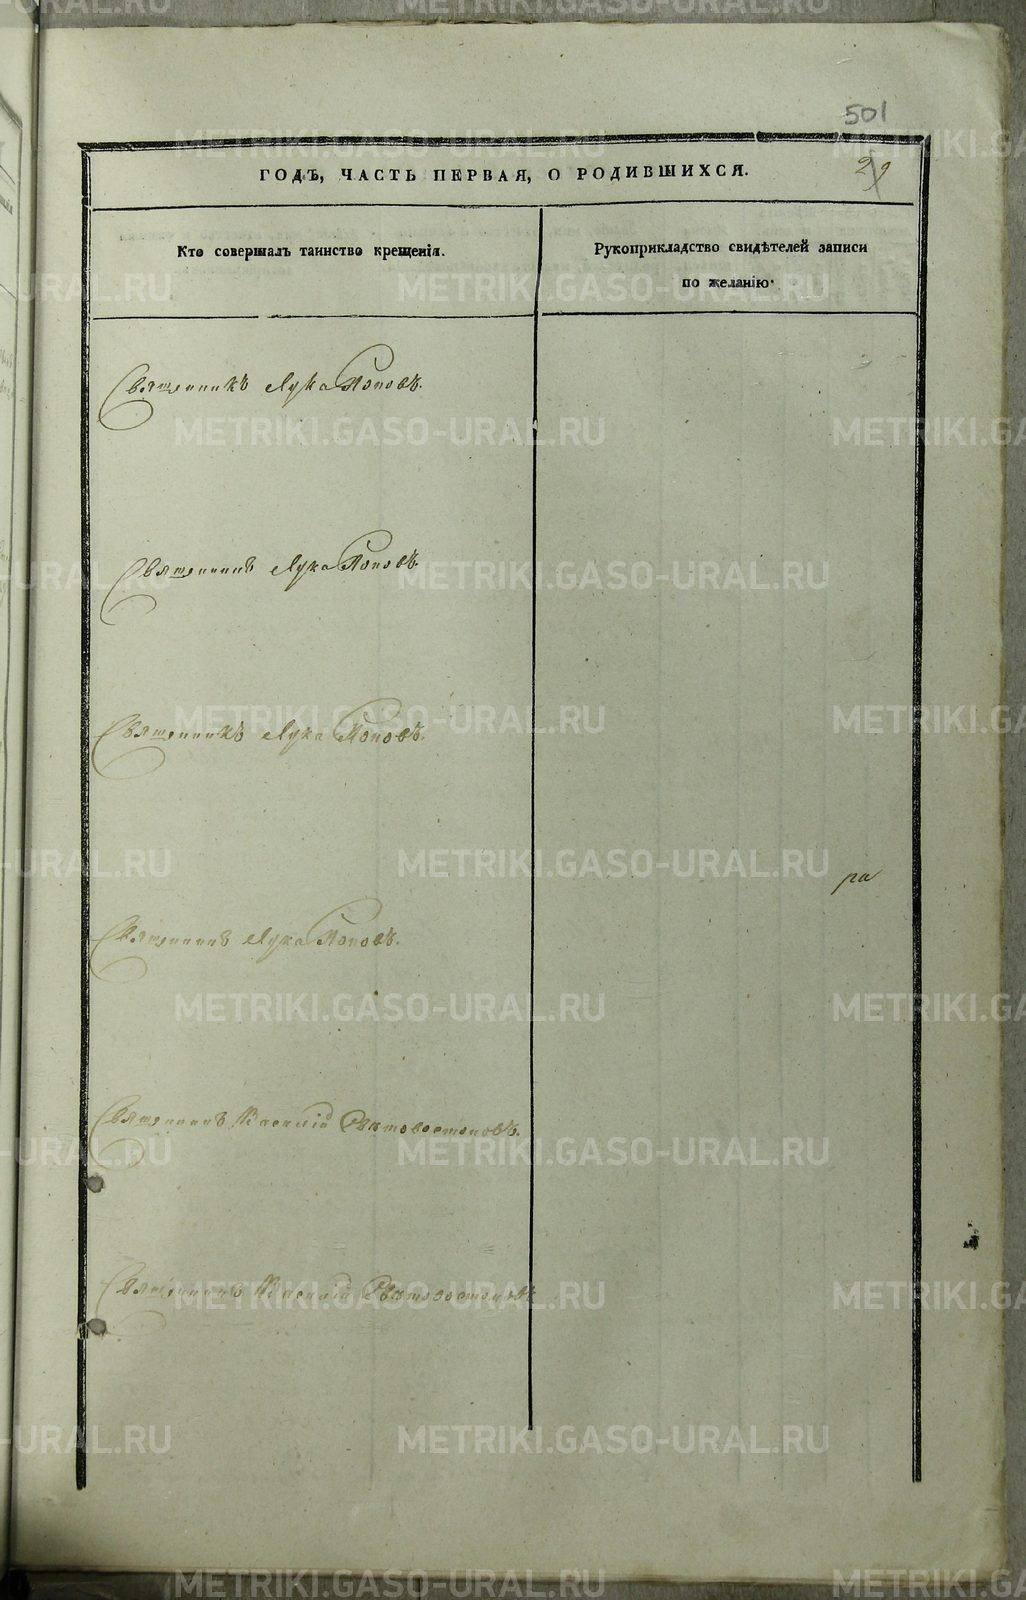 501
29
ГОДЪ, ЧАСТЬ ПЕРВАЯ, О РОДИВШИХСЯ.
Кто совершалъ таинство крещенія.
Рукоприкладство свидѣтелей записи
по желанію.
Священникъ Лука Поповъ.
Священникъ Лука Поповъ.
Священникъ Лука Поповъ.
ра
Священникъ Лука Поповъ.
Священникъ Василій
Священникъ Василій
METRIKI.GASO-URAL.RU